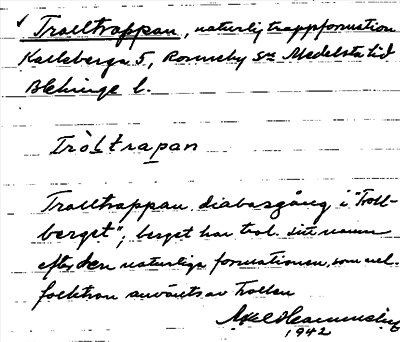 ✓ Trolltrappan, naturlig trappformation
Karlsberga 5, Ronneby sn Medelsta hd
Blekinge l.
Tròltrapan
Trolltrappan, diabasgång i "Troll-
berget"; berget har trol. sitt namn
efter den naturliga formationen, som enl.
folktron använts av trollen
Axel
1942